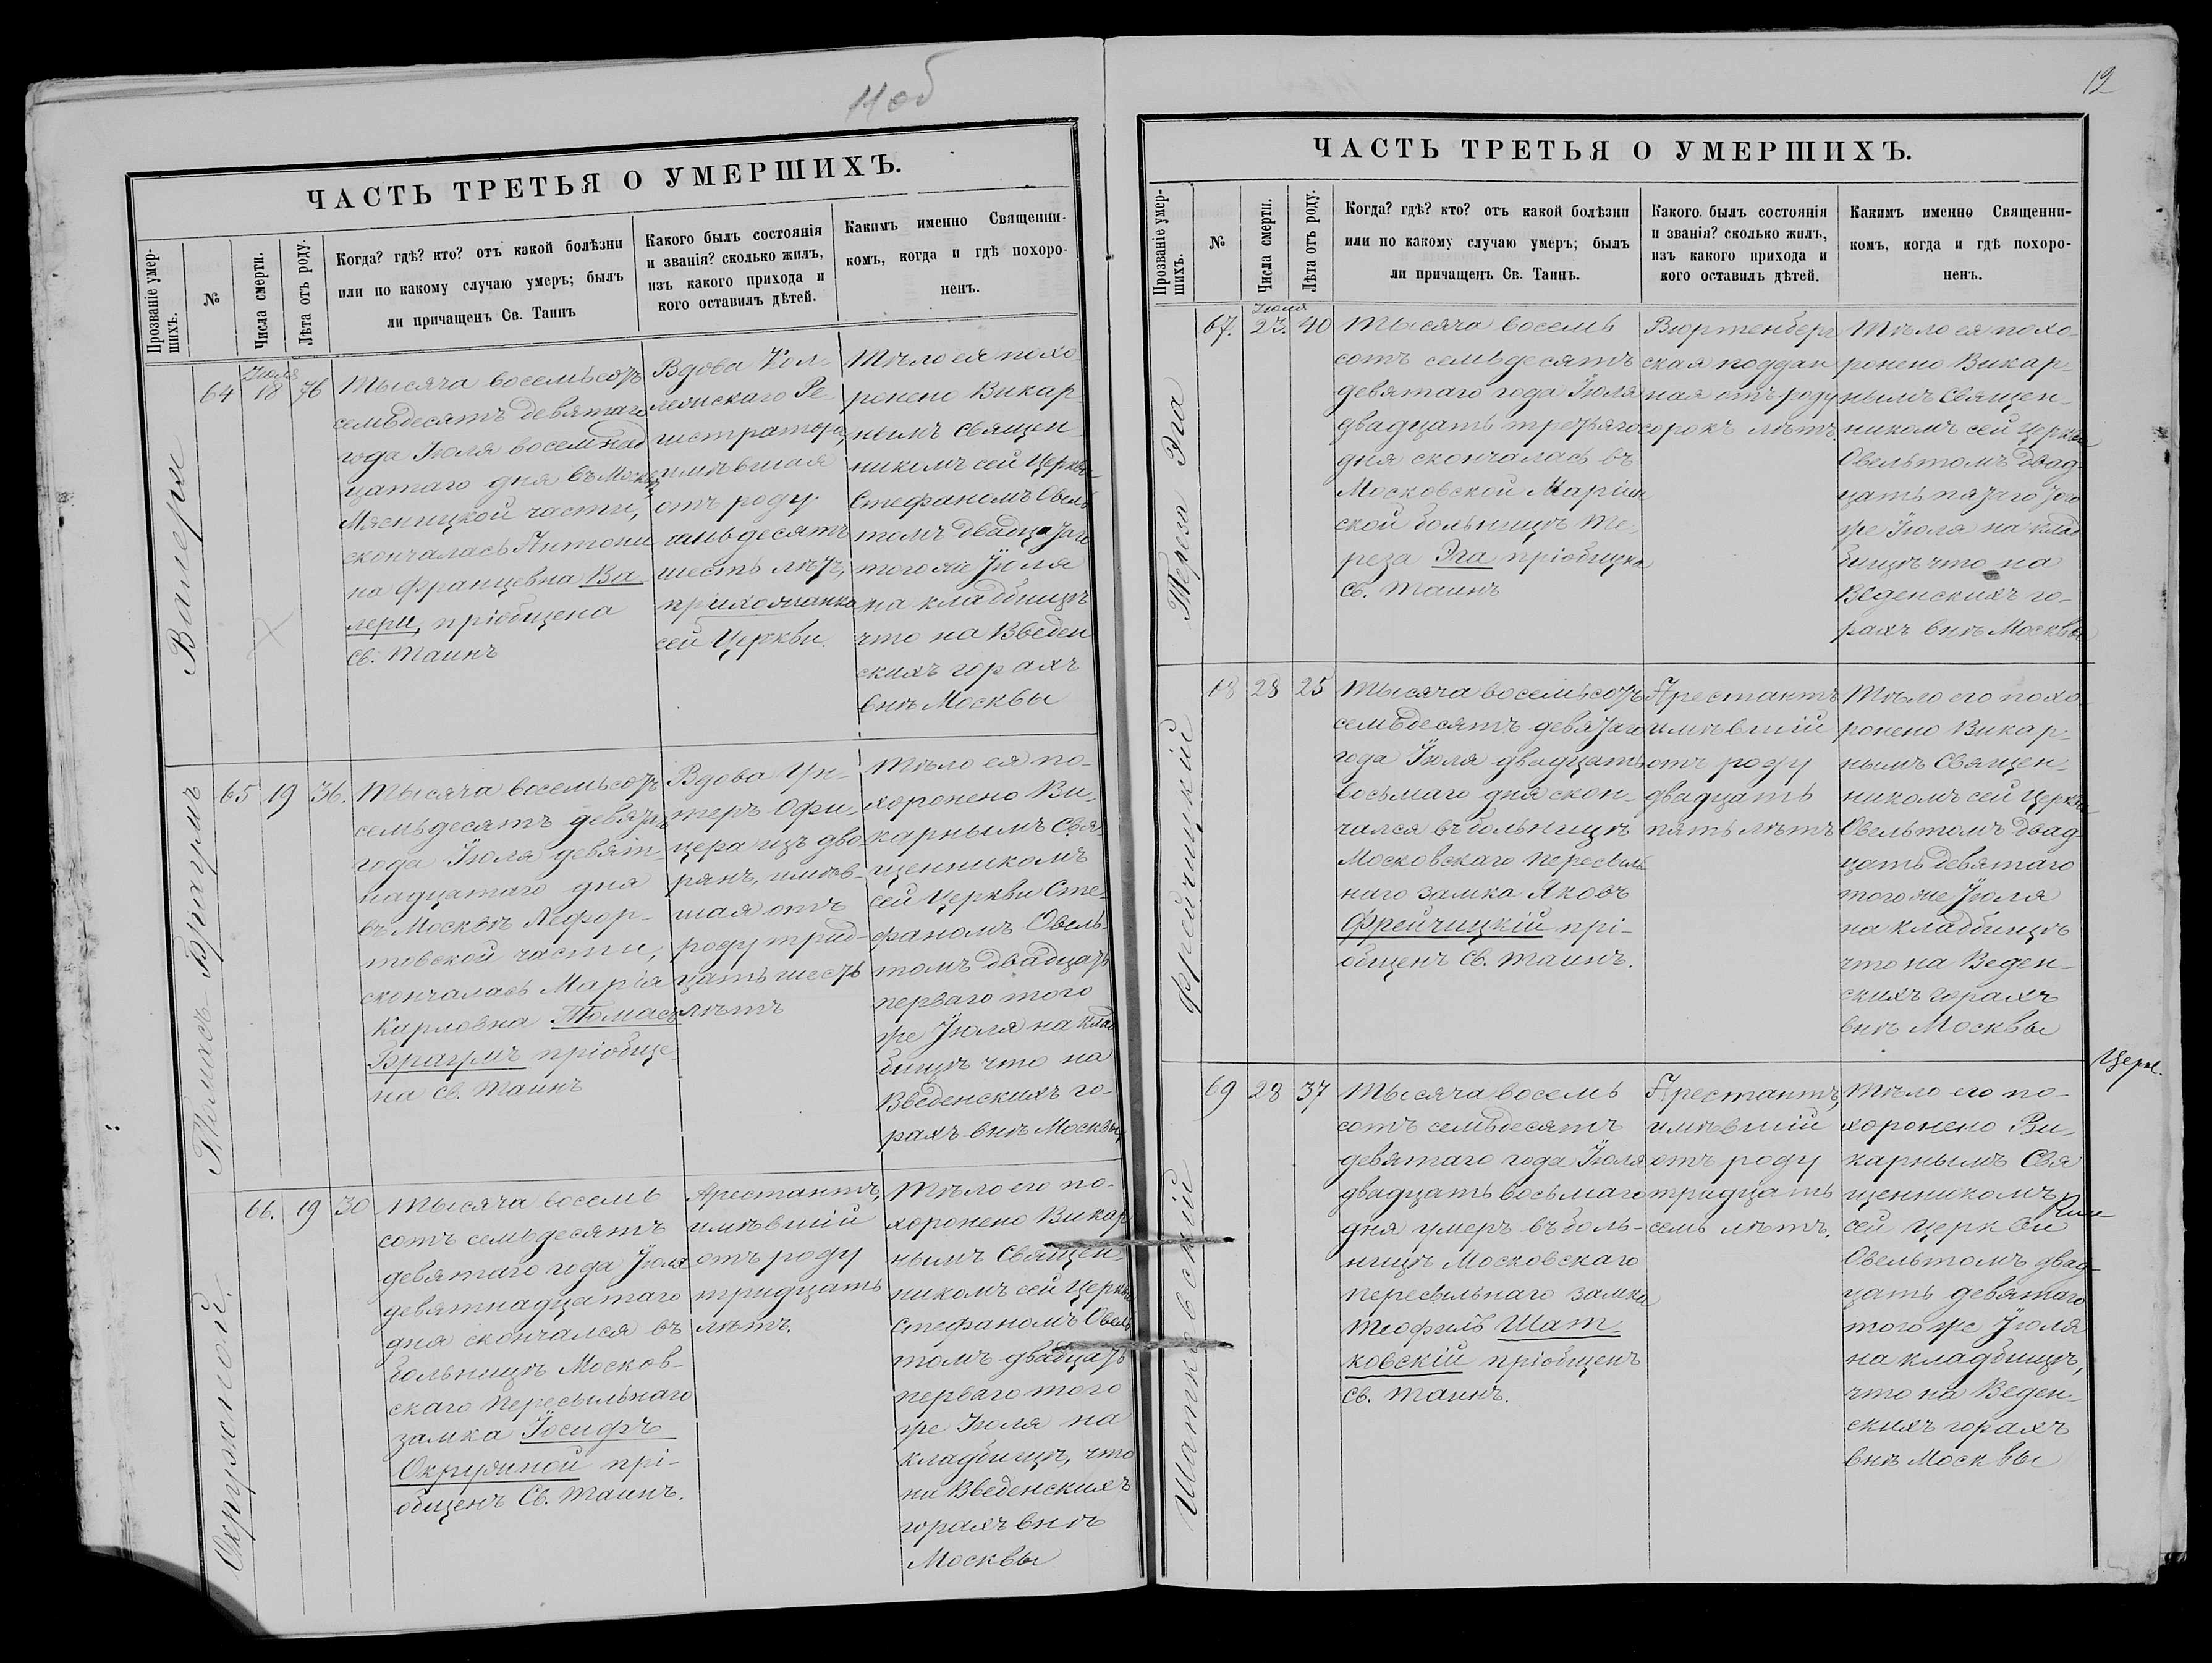 11 об
ЧАСТЬ ТРЕТЬЯ О УМЕРШИХЪ.
Прозваніе умер-
шихъ.
№
Числа смерти.
Лѣта отъ роду.
Когда? гдѣ? кто? отъ какой болѣзни
или по какому случаю умеръ; былъ
ли причащенъ Св. Таинъ
Какого былъ состоянія
и званія? сколько жилъ,
изъ какого прихода и
кого оставилъ дѣтей.
Какимъ именно Священни-
комъ, когда и гдѣ похоро-
ненъ.
Валери
64
Іюля
18
76
Тысяча восемьсотъ
семьдесятъ девятаго
года Іюля восемнад
цатаго дня въ Москвѣ
Мясницкой части,
скончалась Антони
на Францевна Ва
лери, пріобщена
Св. Таинъ
Вдова Кол-
лежскаго Ре-
гистратора
имѣвшая
отъ роду
семьдесятъ
шесть лѣтъ,
прихожанка
сей Церкви.
Тѣло ея похо
ронено Викар-
нымъ Священ-
никомъ сей Церкви
Стефаномъ Овель
томъ двадцатаго
того же Іюля
на кладбищѣ
что на Введен
скихъ горахъ
внѣ Москвы
Томасъ Браумъ
65
19
36.
Тысяча восемьсотъ
семьдесятъ девятаго
года Іюля девят-
надцатаго дня
въ Москвѣ Лефор-
товской части,
скончалась Марія
Карловна Томасъ
Браумъ пріобще-
на Св. Таинъ
Вдова Ун-
теръ Офи-
цера изъ дво-
рянъ, имѣв-
шая отъ
роду трид-
цать шесть
лѣтъ
Тѣло ея по-
хоронено Ви-
карнымъ Свя-
щенникомъ
сей Церкви Сте-
фаномъ Овель-
томъ двадцать
перваго того
же Іюля на клад
бищѣ что на
Введенскихъ го-
рахъ внѣ Москвы
Окружной.
66.
19
30
Тысяча восемь
сотъ семьдесятъ
девятаго года Іюля
девятнадцатаго
дня скончался въ
больницѣ Москов-
скаго Пересыльнаго
замка Іосифъ
Окружной прі-
общенъ Св. Таинъ.
Арестантъ,
имѣвшій
отъ роду
тридцать
лѣтъ.
Тѣло его по-
хоронено Викар
нымъ Священ
никомъ сей Церкви
Стефаномъ Овель
томъ двадцать
перваго того
же Іюля на
кладбищѣ, что
на Введенскихъ
горахъ внѣ
Москвы
12
ЧАСТЬ ТРЕТЬЯ О УМЕРШИХЪ.
Прозваніе умер-
шихъ.
№
Числа смерти.
Лѣта отъ роду.
Когда? гдѣ? кто? отъ какой болѣзни
или по какому случаю умеръ; былъ
ли причащенъ Св. Таинъ.
Какого былъ состоянія
и званія? сколько жилъ,
изъ какого прихода и
кого оставилъ дѣтей.
Какимъ именно Священни-
комъ, когда и гдѣ похоро-
ненъ.
Тереза Эга
67.
Іюля
23.
40
Тысяча восемь
сотъ семьдесятъ
девятаго года Іюля
двадцать третьяго
дня скончалась въ
Московской Маріин
ской больницѣ Те-
реза Эга пріобщена
Св. Таинъ
Вюртенберг
ская поддан
ная отъ роду
сорокъ лѣтъ.
Тѣло ея похо
ронено Викар-
нымъ Священ-
никомъ сей Церкви
Овельтомъ двад-
цать пятаго того
же Іюля на клад
бищѣ что на
Веденскихъ го-
рахъ внѣ Москвы
Фрейчицкій
68
28
25
Тысяча восемьсотъ
семьдесятъ девятаго
года Іюля двадцать
восьмаго дня скон-
чался въ больницѣ
Московскаго Пересыль
наго замка Яковъ
Фрейчицкій прі-
общенъ Св. Таинъ.
Арестантъ
имѣвшій
отъ роду
двадцать
пять лѣтъ
Тѣло его похо
ронено Викар-
нымъ Священ-
никомъ сей Церкви
Овельтомъ двад-
цать девятаго
того же Іюля
на кладбищѣ
что на Веден-
скихъ горахъ
внѣ Москвы
Шатковскій
69
28
37
Тысяча восемь
сотъ семьдесятъ
девятаго года Іюля
двадцать восьмаго
дня умеръ въ боль-
ницѣ Московскаго
пересыльнаго замка
Теофилъ Шат-
ковскій пріобщенъ
Св. Таинъ.
Арестантъ,
имѣвшій
отъ роду
тридцать
семь лѣтъ.
Тѣло его по-
хоронено Ви-
карнымъ Свя
щенникомъ
сей Церкви
Овельтомъ двад-
цать девятаго
того же Іюля
на кладбищѣ,
что на Веден-
скихъ горахъ
внѣ Москвы